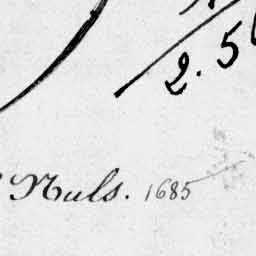 2.5
Nuls. 1685